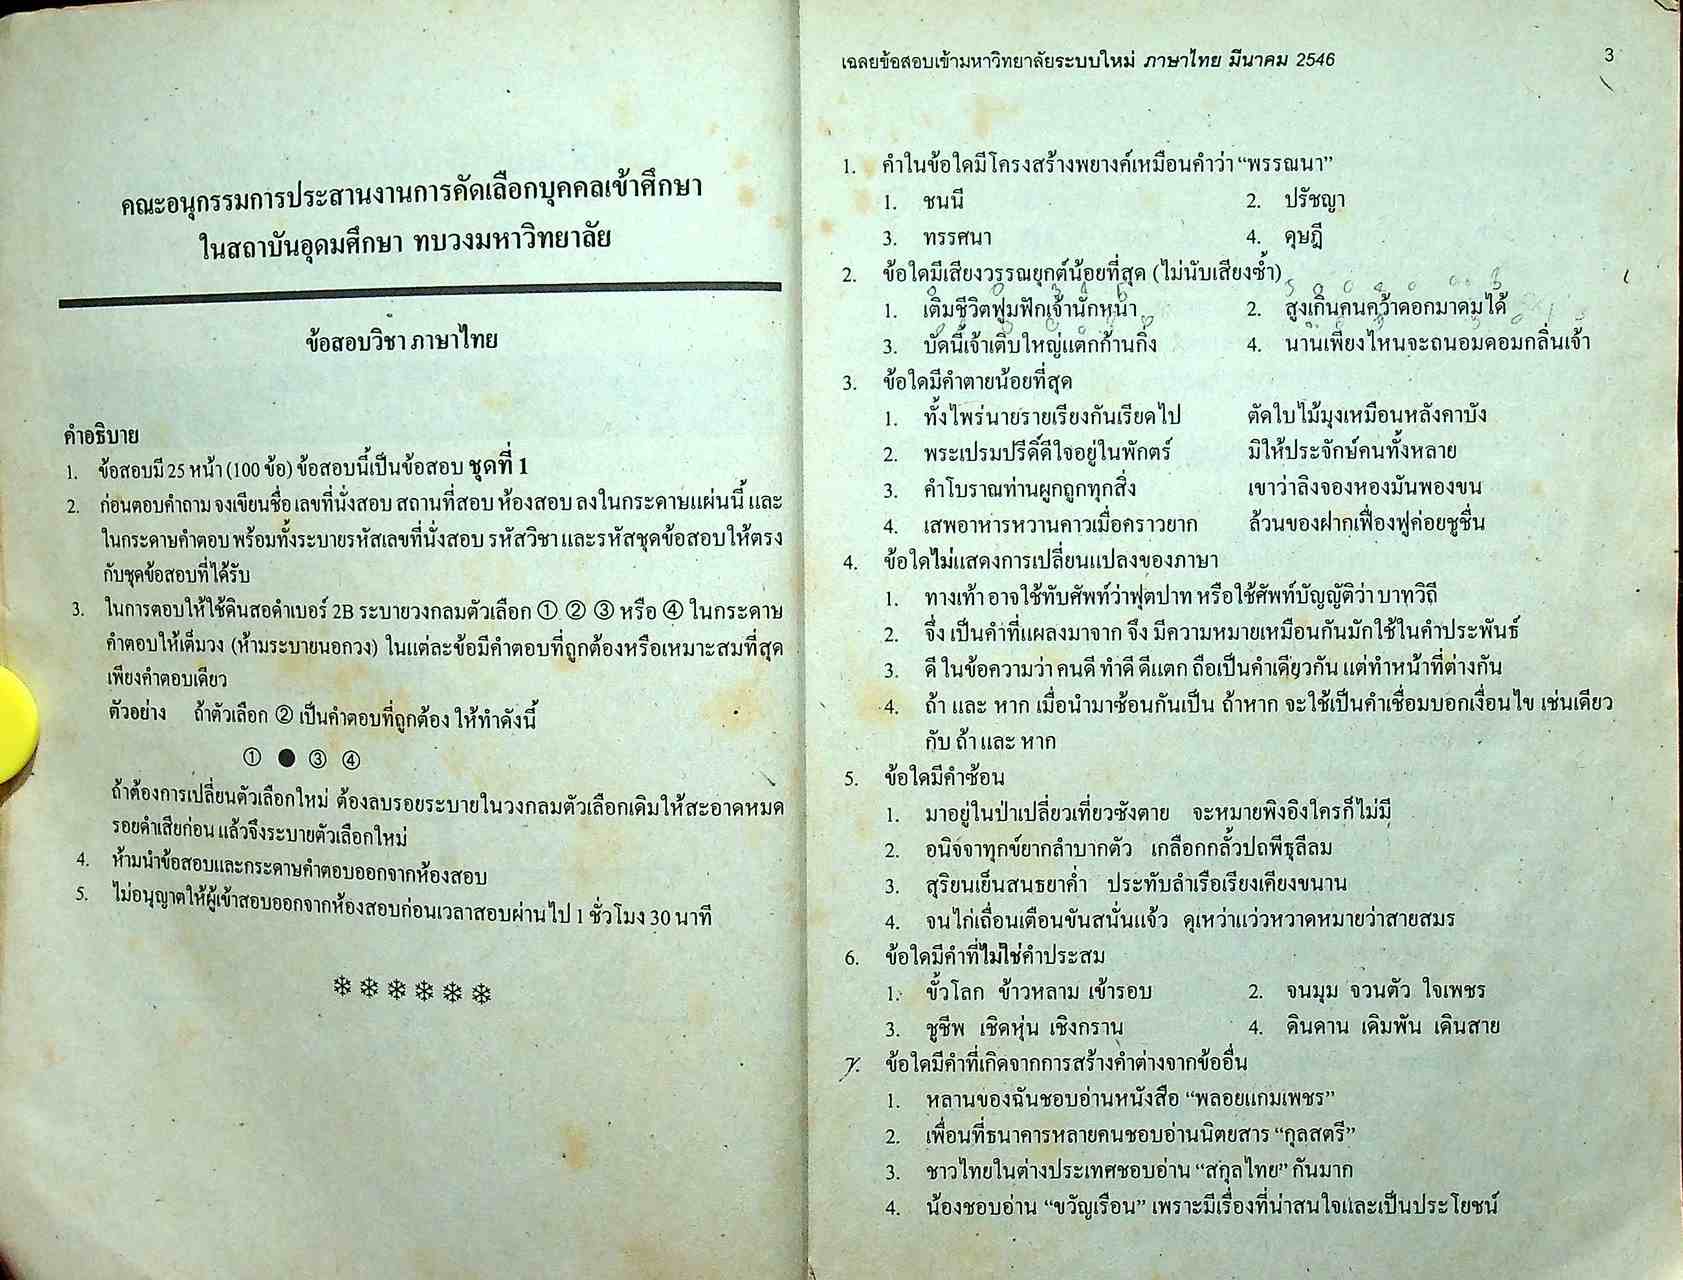 คณะอนุกรรมการประสานงานการคัดเลือกบุคคลเข้าศึกษา
ในสถาบันอุดมศึกษา ทบวงมหาวิทยาลัย
ข้อสอบวิชา ภาษาไทย
คำอธิบาย
1. ข้อสอบมี 25 หน้า (100 ข้อ) ข้อสอบนี้เป็นข้อสอบ ชุดที่ 1
2. ก่อนตอบคำถาม จงเขียนชื่อ เลขที่นั่งสอบ สถานที่สอบ ห้องสอบ ลงในกระดาษแผ่นนี้ และ
ในกระดาษคำตอบ พร้อมทั้งระบายรหัสเลขที่นั่งสอบ รหัสวิชา และรหัสชุดข้อสอบให้ตรง
กับชุดข้อสอบที่ได้รับ
3. ในการตอบให้ใช้ดินสอดำเบอร์ 2B ระบายวงกลมตัวเลือก ① ② ③ หรือ ④ ในกระดาษ
คำตอบให้เต็มวง (ห้ามระบายนอกวง) ในแต่ละข้อมีคำตอบที่ถูกต้องหรือเหมาะสมที่สุด
เพียงคำตอบเดียว
ตัวอย่าง ถ้าตัวเลือก ② เป็นคำตอบที่ถูกต้อง ให้ทำดังนี้
① ● ③ ④
ถ้าต้องการเปลี่ยนตัวเลือกใหม่ ต้องลบรอยระบายในวงกลมตัวเลือกเดิมให้สะอาดหมด
รอยดำเสียก่อน แล้วจึงระบายตัวเลือกใหม่
4. ห้ามนำข้อสอบและกระดาษคำตอบออกจากห้องสอบ
5. ไม่อนุญาตให้ผู้เข้าสอบออกจากห้องสอบก่อนเวลาสอบผ่านไป 1 ชั่วโมง 30 นาที
เฉลยข้อสอบเข้ามหาวิทยาลัยระบบใหม่ ภาษาไทย มีนาคม 2546 3
1. คำในข้อใดมีโครงสร้างพยางค์เหมือนคำว่า “พรรณนา”
1. ชนนี 2. ปรัชญา
3. ทรรศนา 4. ดุษฎี
2. ข้อใดมีเสียงวรรณยุกต์น้อยที่สุด (ไม่นับเสียงซ้ำ)
1. เติมชีวิตฟูมฟักเจ้านักหนา 2. สูงเกินคนคว้าดอกมาดมได้
3. บัดนี้เจ้าเติบใหญ่แตกก้านกิ่ง 4. นานเพียงไหนจะถนอมดอมกลิ่นเจ้า
3. ข้อใดมีคำตายน้อยที่สุด
1. ทั้งไพร่นายรายเรียงกันเรียดไป ตัดใบไม้มุงเหมือนหลังคาบัง
2. พระเปรมปรีดิ์ดีใจอยู่ในพักตร์ มิให้ประจักษ์คนทั้งหลาย
3. คำโบราณท่านผูกถูกทุกสิ่ง เขาว่าลิงจองหองมันพองขน
4. เสพอาหารหวานคาวเมื่อคราวยาก ล้วนของฝากเฟื่องฟูค่อยชูชื่น
4. ข้อใดไม่แสดงการเปลี่ยนแปลงของภาษา
1. ทางเท้า อาจใช้ทับศัพท์ว่าฟุตปาท หรือใช้ศัพท์บัญญัติว่า บาทวิถี
2. จึ่ง เป็นคำที่แผลงมาจาก จึง มีความหมายเหมือนกันมักใช้ในคำประพันธ์
3. ดี ในข้อความว่า คนดี ทำดี ดีแตก ถือเป็นคำเดียวกัน แต่ทำหน้าที่ต่างกัน
4. ถ้า และ หาก เมื่อนำมาซ้อนกันเป็น ถ้าหาก จะใช้เป็นคำเชื่อมบอกเงื่อนไข เช่นเดียว
กับ ถ้า และ หาก
5. ข้อใดมีคำซ้อน
1. มาอยู่ในป่าเปลี่ยวเที่ยวซังตาย จะหมายพิงอิงใครก็ไม่มี
2. อนิจจาทุกข์ยากลำบากตัว เกลือกกลั้วปถพีธุลีลม
3. สุริยนเย็นสนธยาค่ำ ประทับลำเรือเรียงเคียงขนาน
4. จนไก่เถื่อนเตือนขันสนั่นแจ้ว ดุเหว่าแว่วหวาดหมายว่าสายสมร
6. ข้อใดมีคำที่ไม่ใช่คำประสม
1. ขั้วโลก ข้าวหลาม เข้ารอบ 2. จนมุม จวนตัว ใจเพชร
3. ชูชีพ เชิดหุ่น เชิงกราน 4. ดินดาน เดิมพัน เดินสาย
7. ข้อใดมีคำที่เกิดจากการสร้างคำต่างจากข้ออื่น
1. หลานของฉันชอบอ่านหนังสือ “พลอยแกมเพชร”
2. เพื่อนที่ธนาคารหลายคนชอบอ่านนิตยสาร “กุลสตรี”
3. ชาวไทยในต่างประเทศชอบอ่าน “สกุลไทย” กันมาก
4. น้องชอบอ่าน “ขวัญเรือน” เพราะมีเรื่องที่น่าสนใจและเป็นประโยชน์